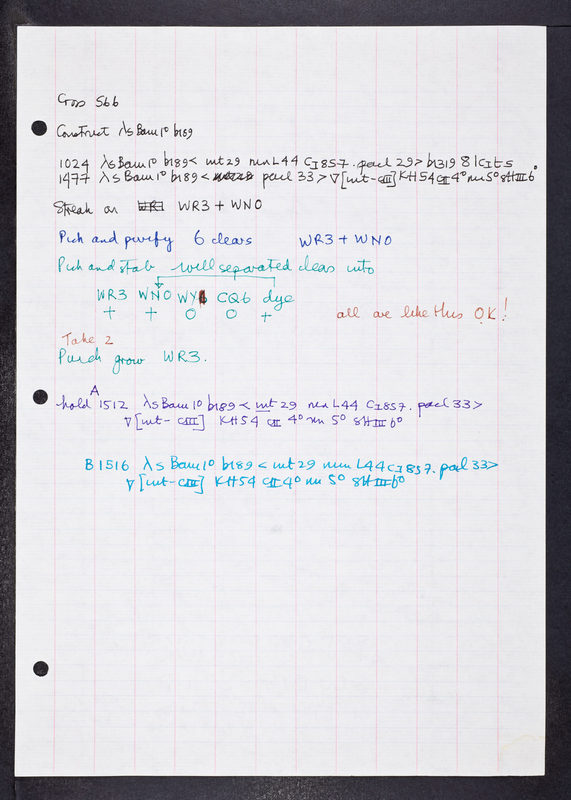 Cross 566
Construct λs Bam1° b189
1024 λs Bam1° b189 < int 29 nin L44 cI857. pael 29 > b1319 8 1cIts
1477 λs Bam1° b189 < pael 33 > ∇ [int-cIII] KH54 cII 4° nin 5° sHIII6°
Streak on WR3 + WNO
Pick and purify 6 clears WR3 + WNO
Pick and stab well separated clears into
WR3 WNO WY CQ6 dye
+ + O O +
all are like this OK!
Take 2
Purch grow WR3.
A
hold 1512 λs Bam1° b189 < int 29 nin L44 cI857. pael 33 >
∇ [int-cIII] KH54 cII 4° nin 5° sHIII6°
B 1516 λs Bam1° b189 < int 29 nin L44 cI857. pael 33 >
∇ [int-cIII] KH54 cII 4° nin 5° sHIII6°